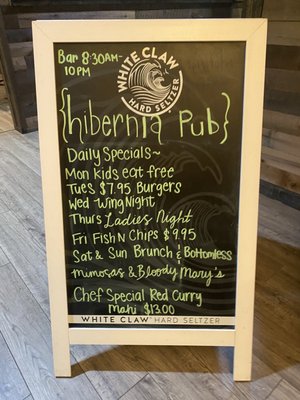 Bar 8:30AM-
10PM
WHITE CLAW
HARD SELTZER
{hibernia Pub}
Daily Specials~
Mon Kids eat free
Tues $7.95 Burgers
Wed Wing Night
Thurs Ladies Night
Fri Fish N Chips $9.95
Sat & Sun Brunch & Bottomless
Mimosas & Bloody Mary's
Chef Special Red Curry
Mahi $13.00
WHITE CLAW HARD SELTZER